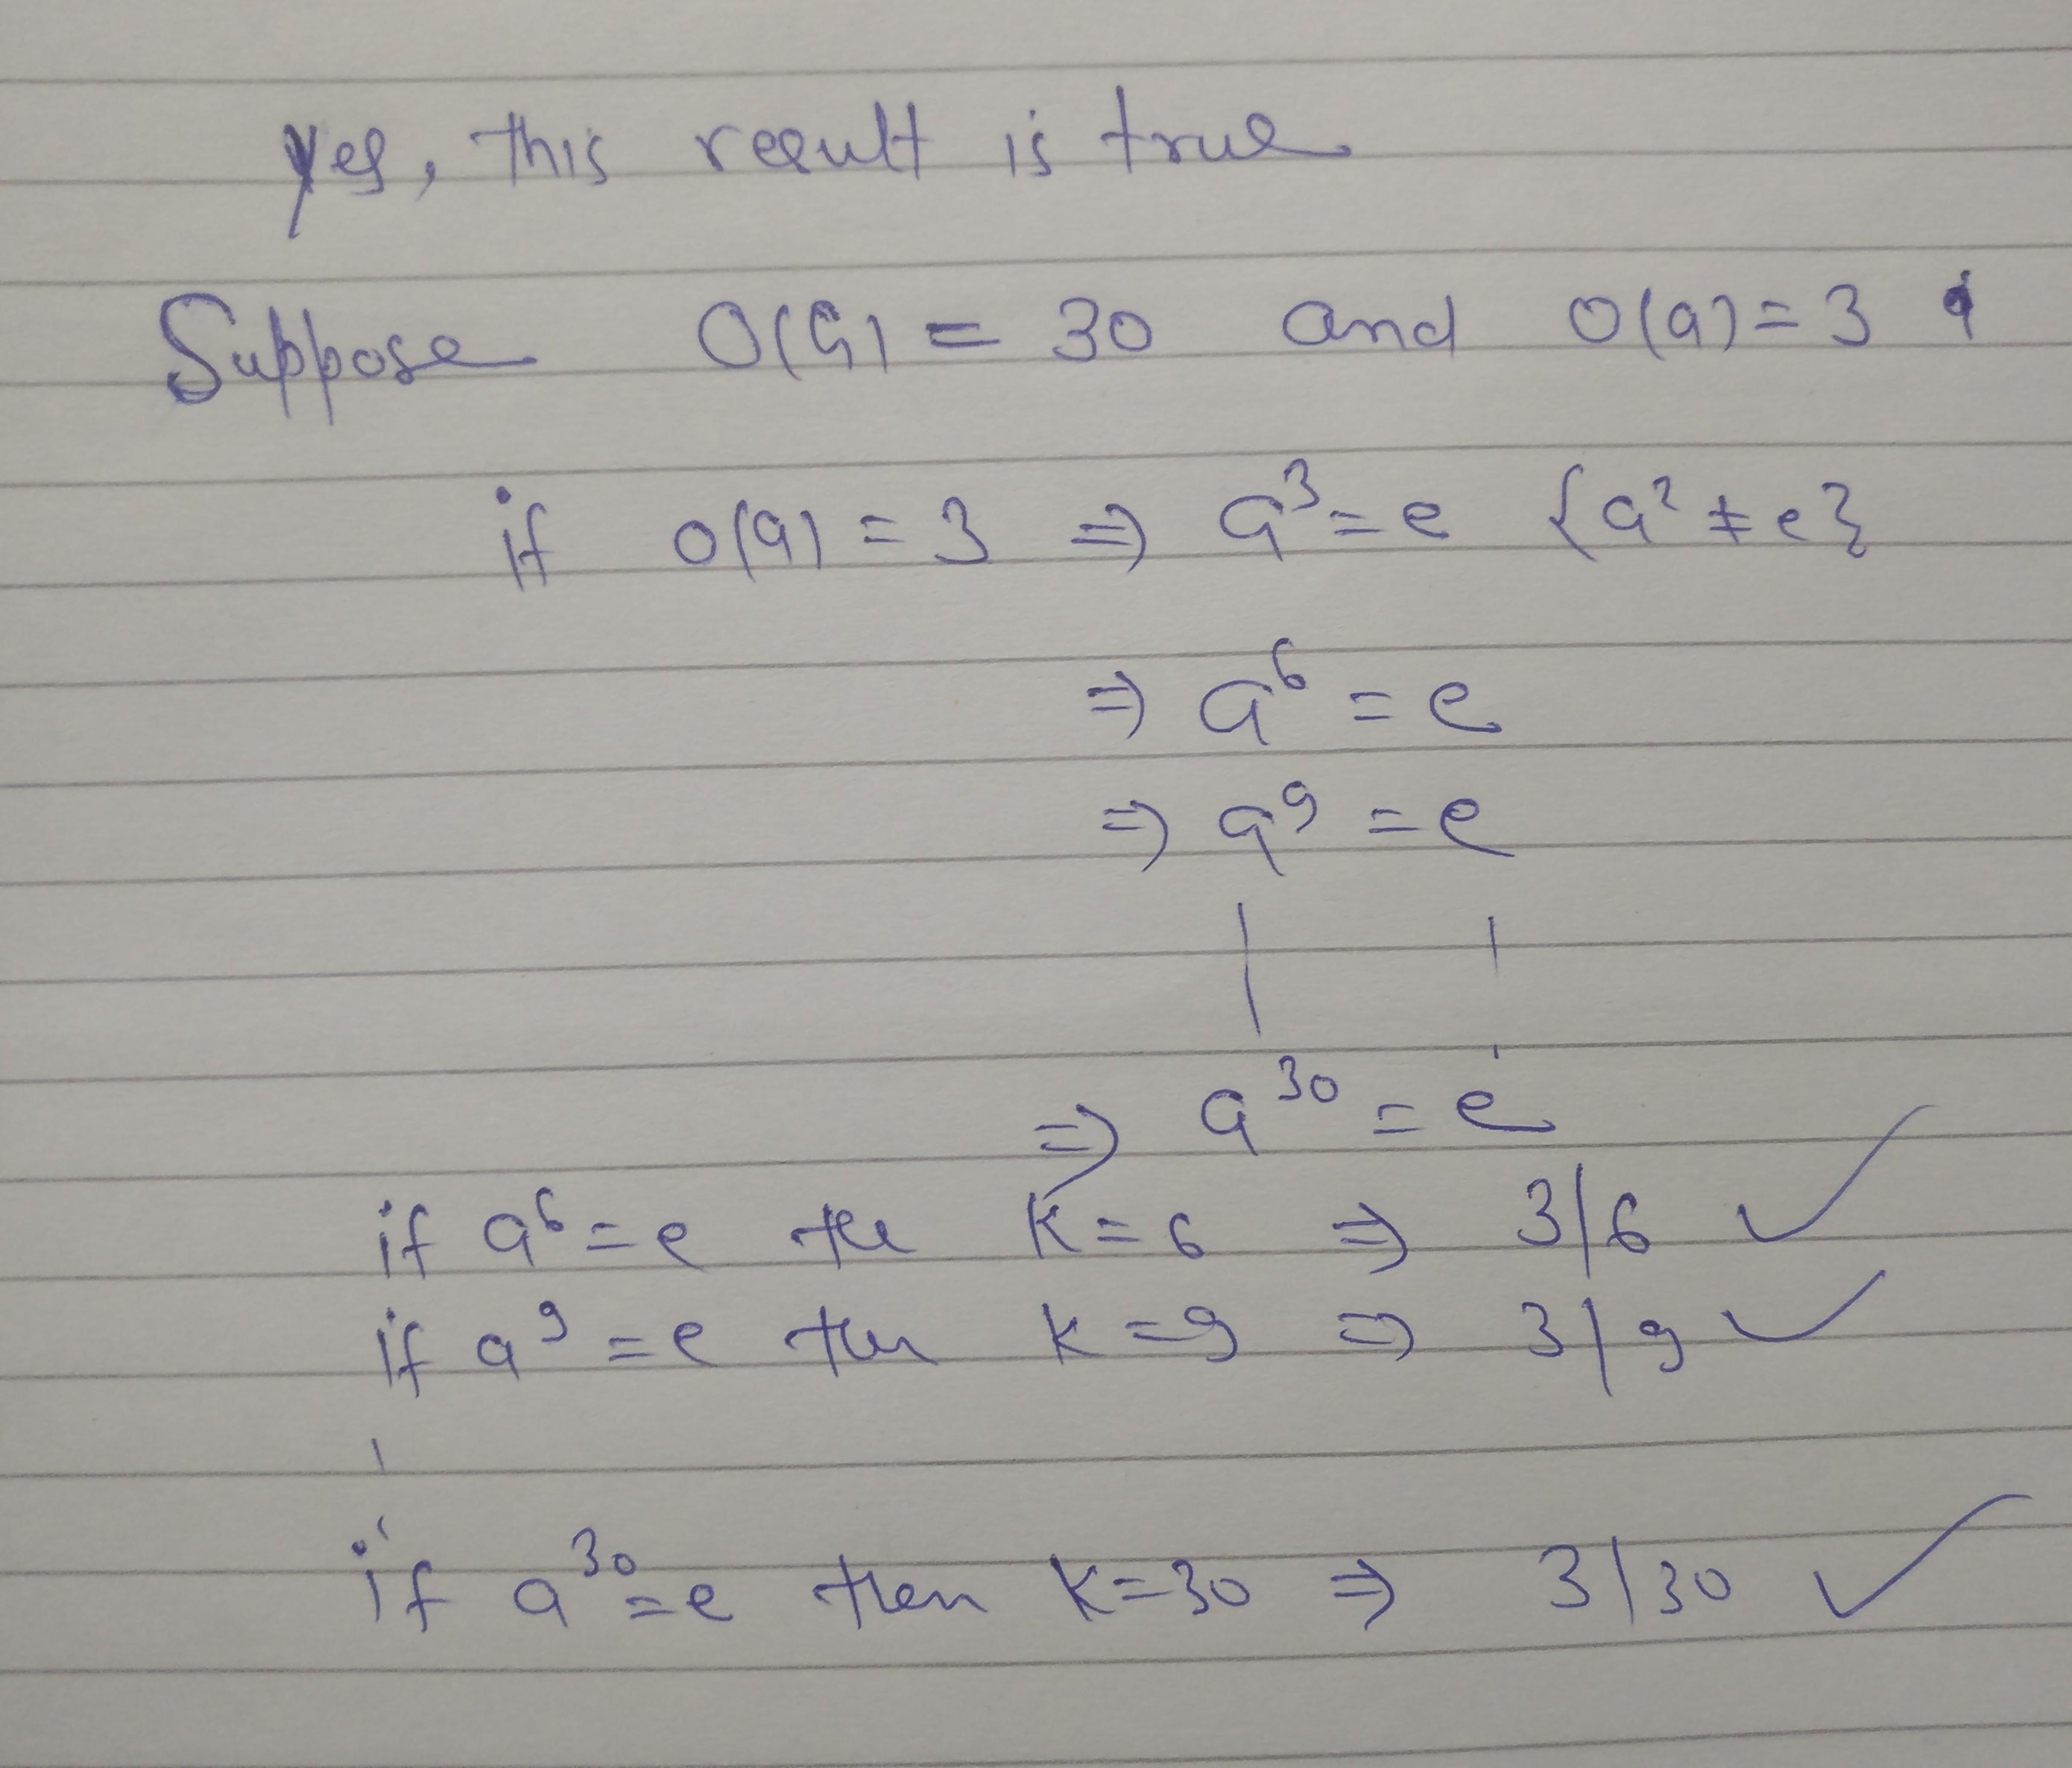 Yes, this result is true
Suppose O(G) = 30 and O(a) = 3
if O(a) = 3 ⇒ a³ = e {a² ≠ e}
⇒ a⁶ = e
⇒ a⁹ = e
⇒ a³⁰ = e
if a⁶ = e the K = 6 ⇒ 3/6 ✓
if a⁹ = e then K = 9 ⇒ 3/9 ✓
if a³⁰ = e then K = 30 ⇒ 3/30 ✓